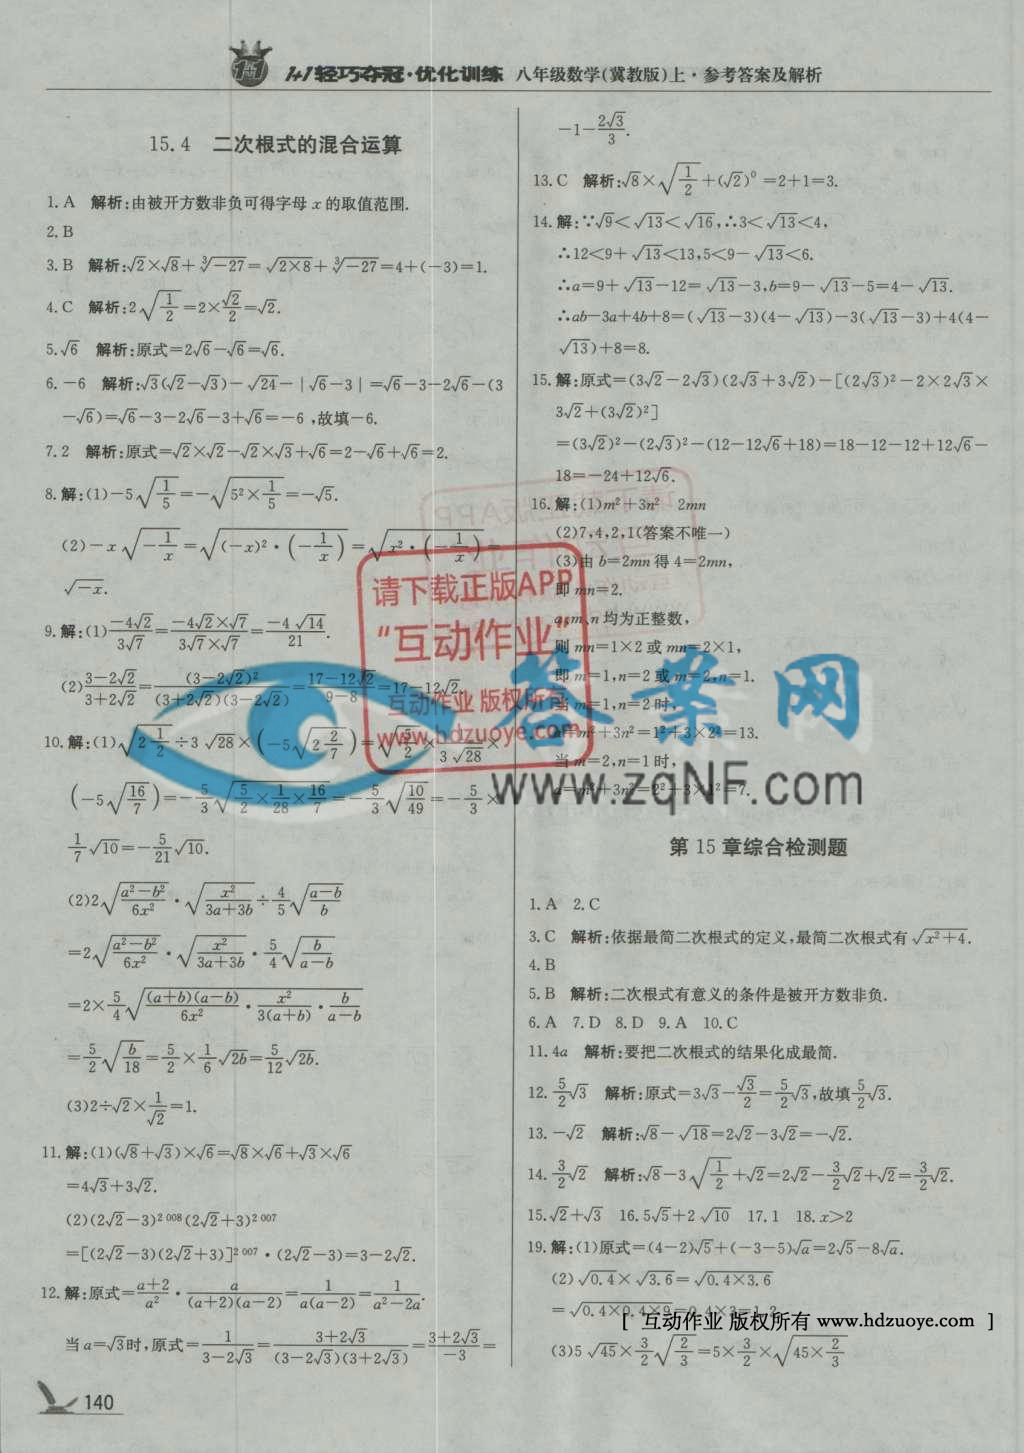 1+1轻巧夺冠·优化训练 八年级数学(冀教版)上·参考答案及解析
15.4 二次根式的混合运算
1. A 解析:由被开方数非负可得字母 x 的取值范围.
2. B
3. B 解析:√2×√8+∛-27=√(2×8)+∛-27=4+(-3)=1.
4. C 解析:2√(1/2)=2×√2/2=√2.
5. √6 解析:原式=2√6-√6=√6.
6. -6 解析:√3(√2-√3)-√24-|√6-3|=√6-3-2√6-(3
-√6)=√6-3-2√6-3+√6=-6,故填-6.
7. 2 解析:原式=√2×√2-√2×√3+√6=2-√6+√6=2.
8. 解:(1)-5√(1/5)=-√(5²×1/5)=-√5.
(2)-x√(-1/x)=√((-x)²·(-1/x))=√(x²·(-1/x))=
√-x.
9. 解:(1)(-4√2)/(3√7)=(-4√2×√7)/(3√7×√7)=(-4√14)/21.
(2)(3-2√2)/(3+2√2)=(3-2√2)²/((3+2√2)(3-2√2))=(17-12√2)/(9-8)=17-12√2.
10. 解:(1)√(2 1/2)÷3√28×(-5√(2 2/7))=√(5/2)×1/(3√28)×
(-5√(16/7))=-5/3√(5/2×1/28×16/7)=-5/3√(10/49)=-5/3×
1/7√10=-5/21√10.
(2)2√((a²-b²)/6x²)·√(x²/(3a+3b))÷4/5√((a-b)/b)
=2√((a²-b²)/6x²)·√(x²/(3a+3b))·5/4√(b/(a-b))
=2×5/4√((a+b)(a-b)/6x²·x²/3(a+b)·b/(a-b))
=5/2√(b/18)=5/2×1/6√2b=5/12√2b.
(3)2÷√2×1/√2=1.
11. 解:(1)(√8+√3)×√6=√8×√6+√3×√6
=4√3+3√2.
(2)(2√2-3)²⁰⁰⁸(2√2+3)²⁰⁰⁷
=[(2√2-3)(2√2+3)]²⁰⁰⁷·(2√2-3)=3-2√2.
12. 解:原式=(a+2)/a²·a/((a+2)(a-2))=1/(a(a-2))=1/(a²-2a).
当 a=√3时,原式=1/(3-2√3)=(3+2√3)/((3-2√3)(3+2√3))=(3+2√3)/-3=
-1-2√3/3.
13. C 解析:√8×√(1/2)+(√2)⁰=2+1=3.
14. 解:∵√9<√13<√16,∴3<√13<4,
∴12<9+√13<13,5<9-√13<6.
∴a=9+√13-12=√13-3,b=9-√13-5=4-√13.
∴ab-3a+4b+8=(√13-3)(4-√13)-3(√13-3)+4(4-
√13)+8=8.
15. 解:原式=(3√2-2√3)(2√3+3√2)-[(2√3)²-2×2√3×
3√2+(3√2)²]
=(3√2)²-(2√3)²-(12-12√6+18)=18-12-12+12√6-
18=-24+12√6.
16. 解:(1)m²+3n² 2mn
(2)7,4,2,1(答案不唯一)
(3)由 b=2mn 得 4=2mn,
即 mn=2.
a,m,n 均为正整数,
则 mn=1×2 或 mn=2×1,
即 m=1,n=2 或 m=2,n=1.
当 m=1,n=2 时,
a=m²+3n²=1²+3×2²=13.
当 m=2,n=1 时,
a=m²+3n²=2²+3×1²=7.
第 15 章综合检测题
1. A 2. C
3. C 解析:依据最简二次根式的定义,最简二次根式有√(x²+4).
4. B
5. B 解析:二次根式有意义的条件是被开方数非负.
6. A 7. D 8. D 9. A 10. C
11. 4a 解析:要把二次根式的结果化成最简.
12. 5/2√3 解析:原式=3√3-√3/2=5/2√3,故填5/2√3.
13. -√2 解析:√8-√18=2√2-3√2=-√2.
14. 3/2√2 解析:√8-3√(1/2)+√2=2√2-3/2√2+√2=3/2√2.
15. √2+√3 16. 5√5+2√10 17. 1 18. x>2
19. 解:(1)原式=(4-2)√5+(-3-5)√a=2√5-8√a.
(2)√0.4×√3.6=√(0.4×3.6)
=√(0.4×0.4×9)=0.4×3=1.2
(3)5√45×3/2√(2/3)=5×3/2×√(45×2/3)
140
请下载正版APP
“互动作业”
互动作业 版权所有
www.hdzuoye.com
答案网
www.zqNF.com
[ 互动作业 版权所有 www.hdzuoye.com ]